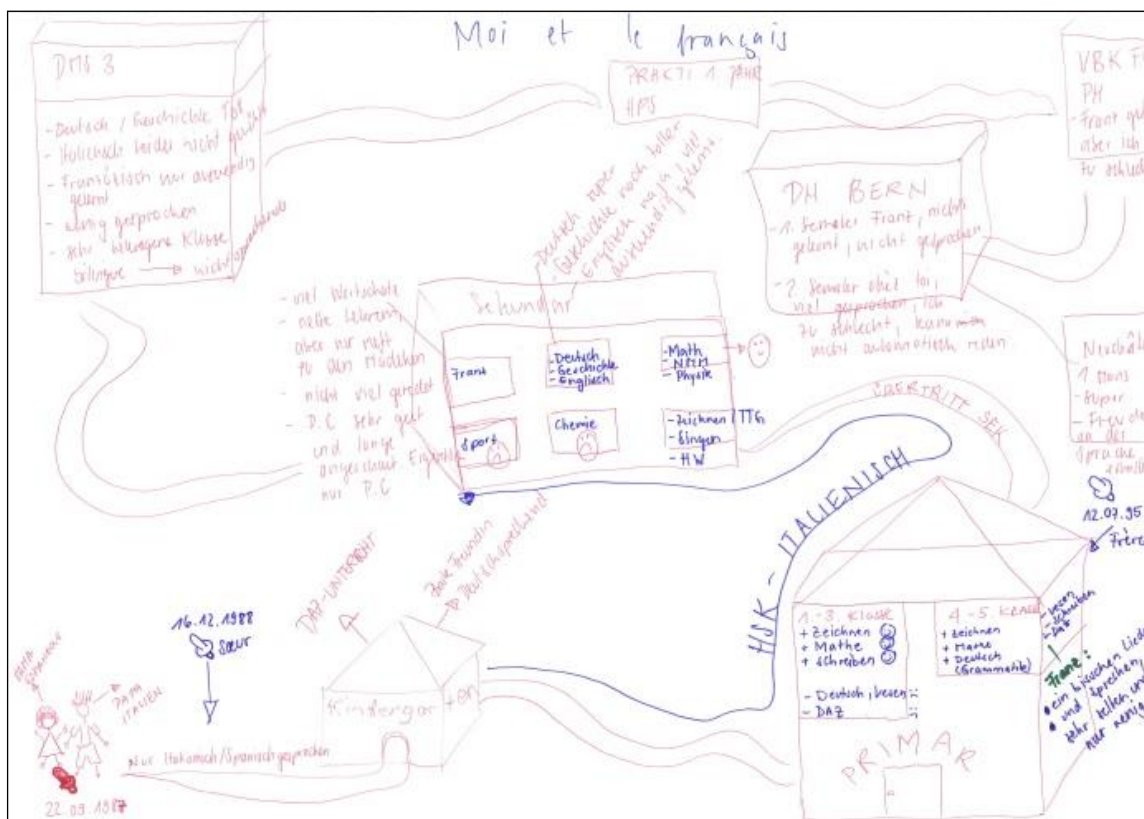 Moi et le français
DMS 3
- Deutsch / Geschichte TOP
- Italienisch leider nicht gewählt
- Französisch nur auswendig
gelernt
- wenig gesprochen
- sehr Klasse
bilingue → nicht
PRAKTI 1 JAHR
HPS
VBK
PH
- Franz
aber ich
zu schlecht
PH BERN
- 1. Semester Franz, nicht
gelernt, nicht gesprochen
- 2. Semester
viel gesprochen, ich
zu schlecht, kann
nicht automatisch reden
1 Mons
- super
- Freude
an der
Sprache
Deutsch super
Geschichte noch toller
Englisch naja viel
auswendig gelernt.
Sekundar
- viel Wortschatz
- nette Lehrerin,
aber nur nett
zu den Mädchen
- nicht viel geredet
- D.C sehr gut
und lange
angeschaut
nur D.C
Franz
- Deutsch
- Geschichte
- Englisch
- Math
- NMM
- Physik
Sport
Chemie
- Zeichnen / TTG
- Singen
- HW
ÜBERTRITT SEK
HSK - ITALIENISCH
12.07.95
Frère
DAZ-UNTERRICHT
Freundin
Deutschsprachend
16.12.1988
Sœur
MAMA
SPANIEN
PAPA
ITALIEN
Kindergarten
Nur Italienisch/Spanisch gesprochen
22.09.1987
1.-3. Klasse
+ Zeichnen
+ Mathe
+ schreiben
- Deutsch, lesen
- DAZ
4.-5. Klasse
+ zeichnen
+ Mathe
+ Deutsch
(Grammatik)
- lesen
- schreiben
- DAZ
Franz:
ein bisschen Lieder
und sprechen,
sehr selten und
nur wenig
PRIMAR